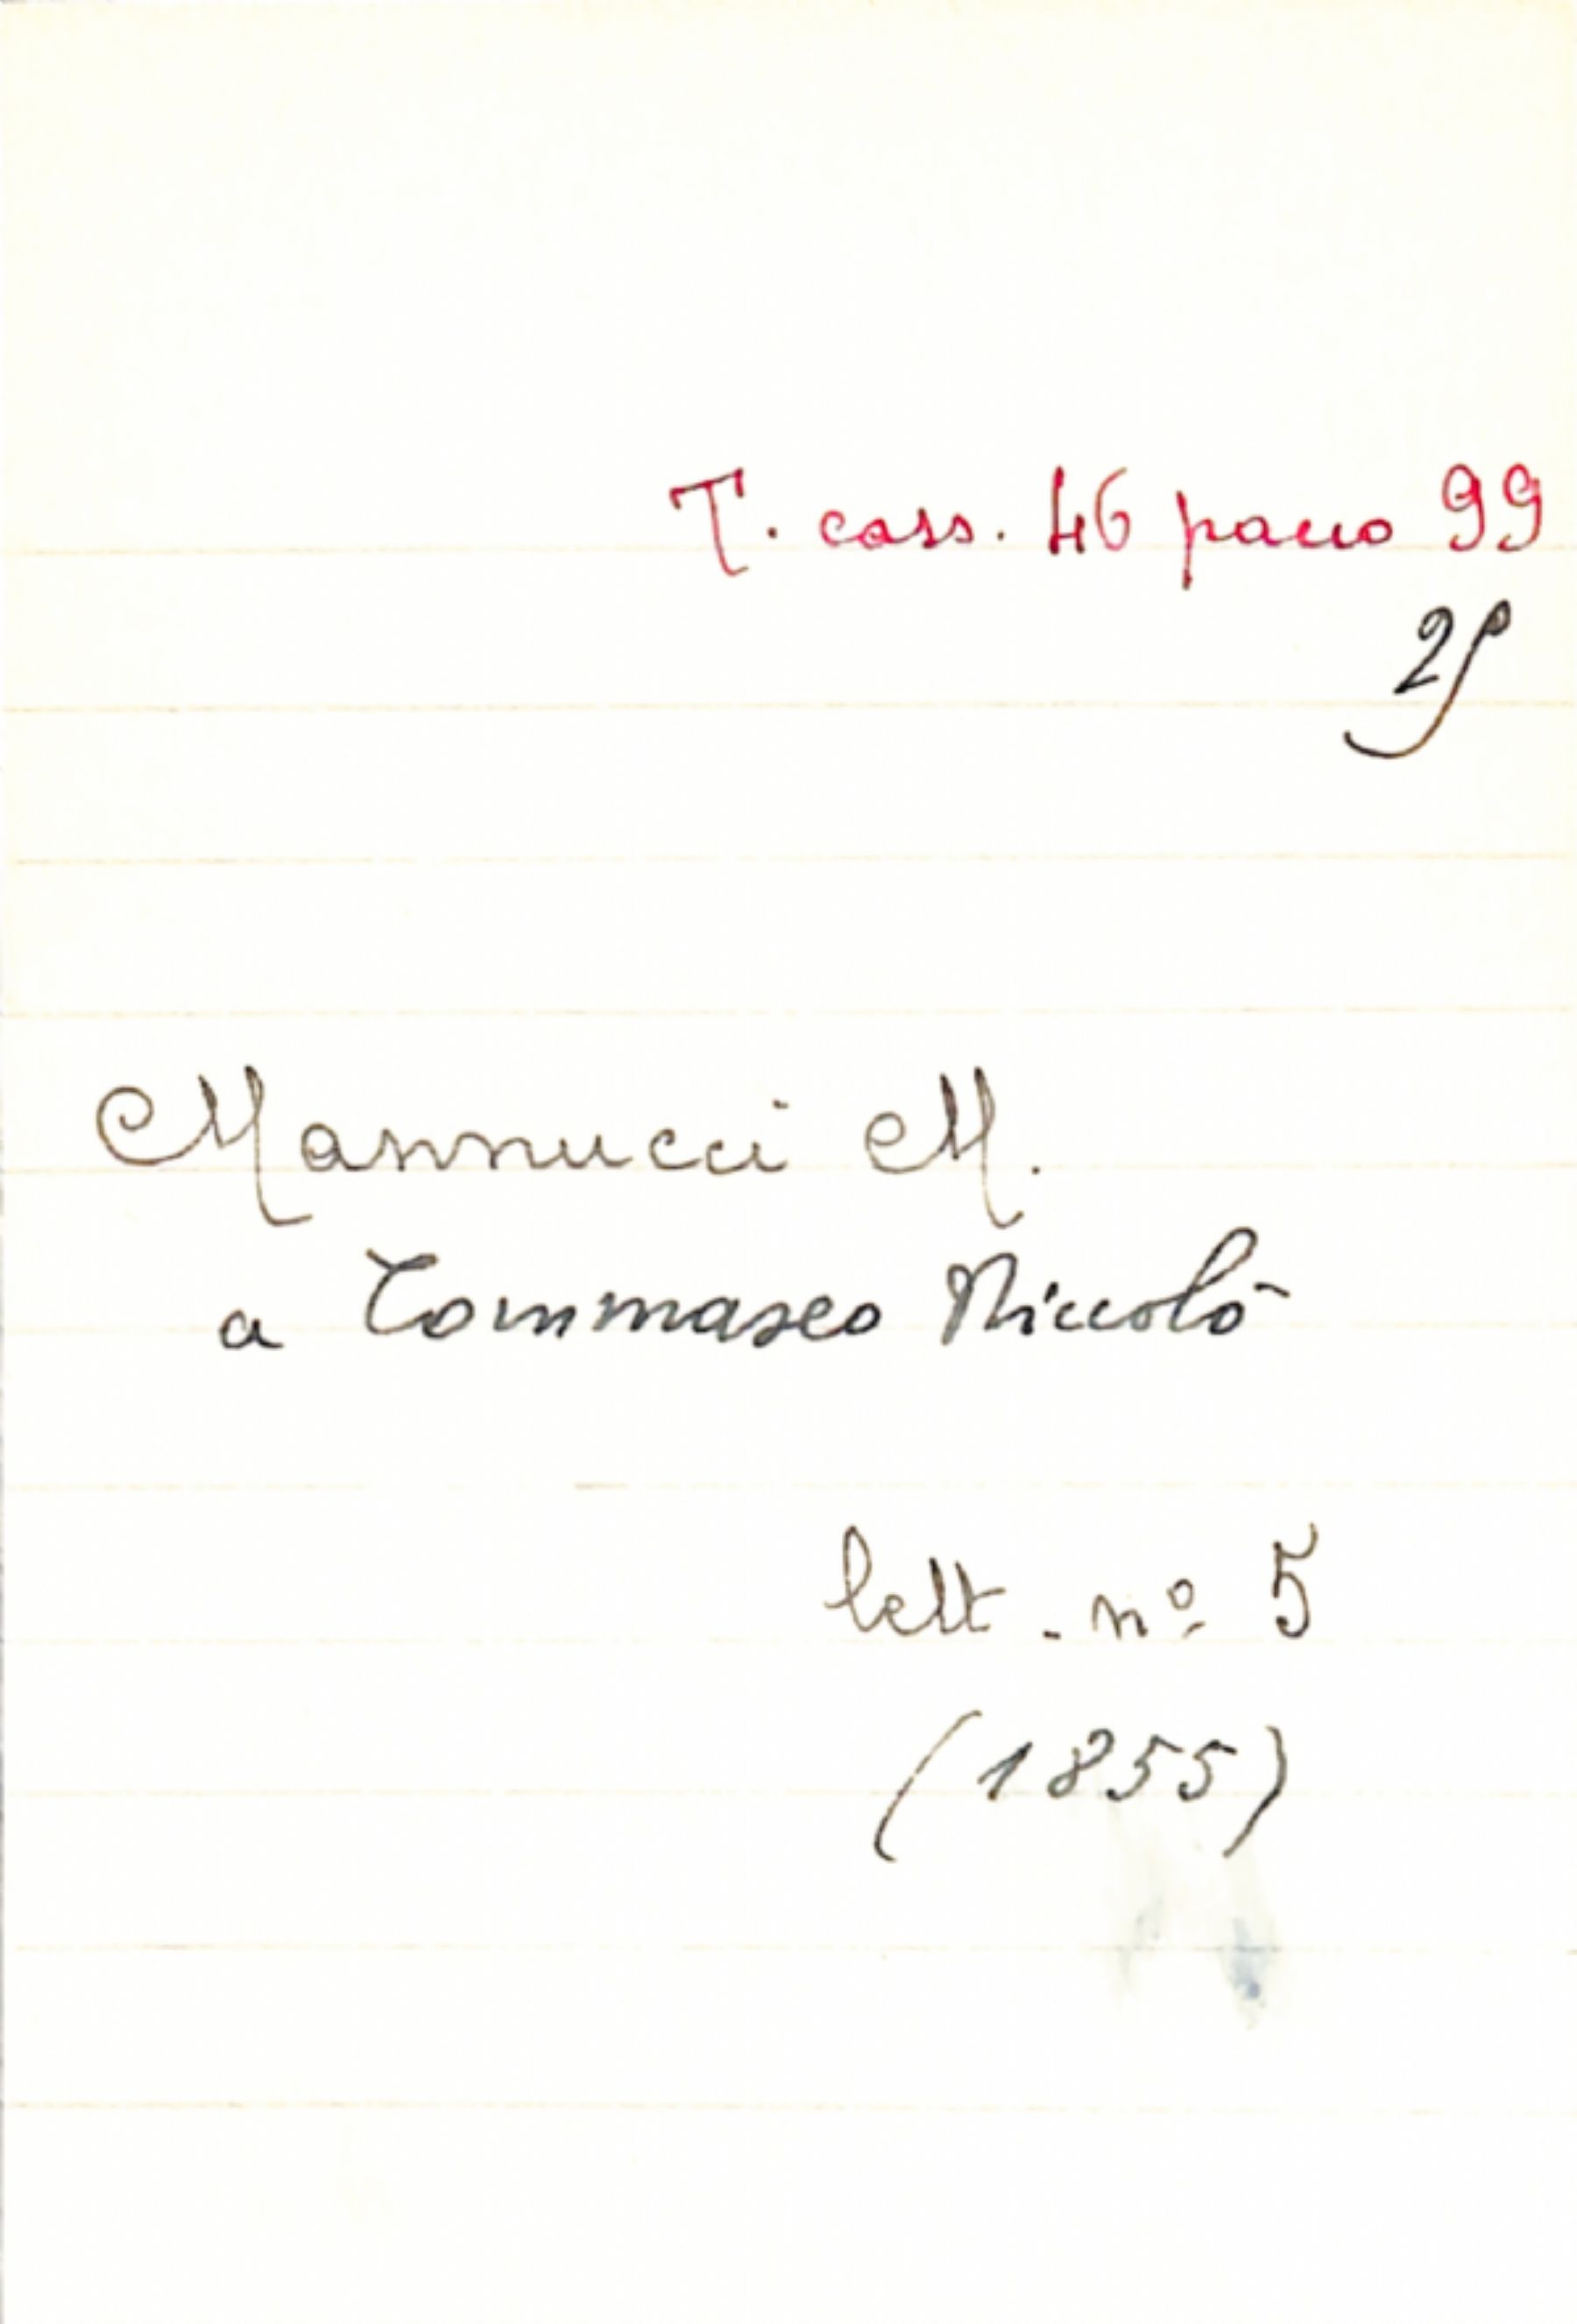 T. cass. 46 pacco 99
Mannucci M.
a Tommaseo Niccolò
lett. nº 5
(1855)